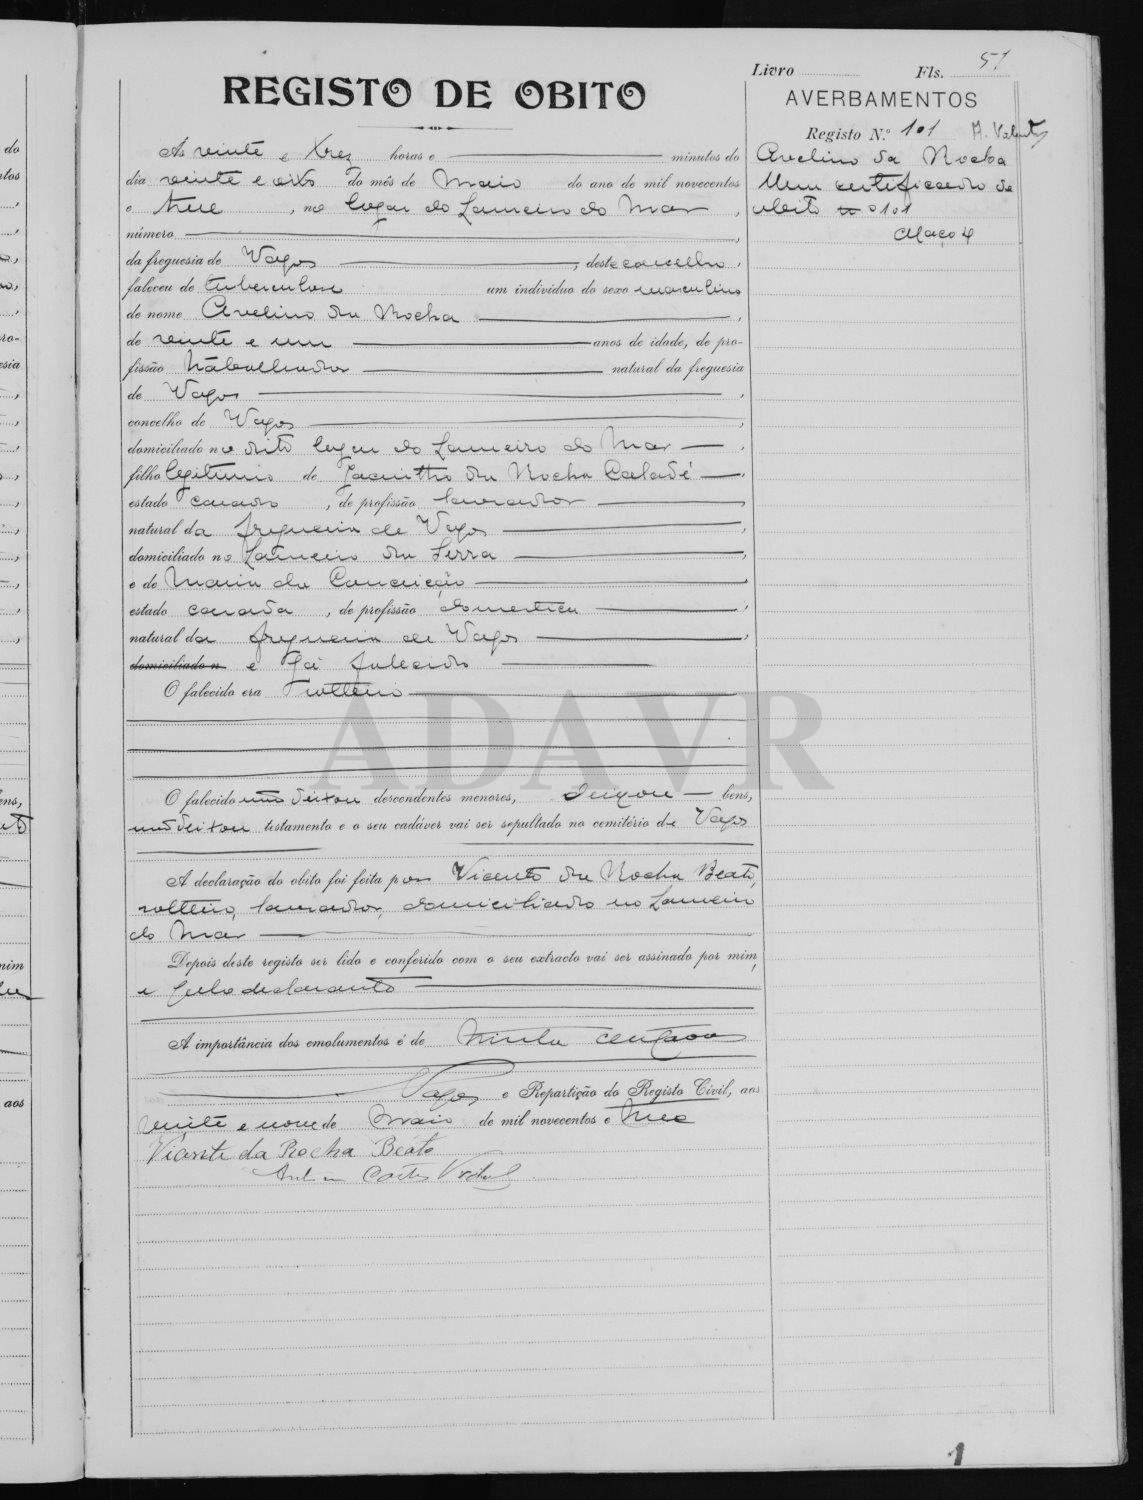 Livro Fls. 51
REGISTO DE OBITO
AVERBAMENTOS
Registo N.º 101
Avelino da Rocha
Um certificado de
obito nº 101
Maço 4
Às vinte e trez horas e minutos do
dia vinte e oito do mês de Maio do ano de mil novecentos
e treze, no logar do Lameiro do Mar,
número
da freguesia de Vagos, deste concelho,
faleceu de tuberculose um individuo do sexo masculino
de nome Avelino da Rocha,
de vinte e um anos de idade, de pro-
fissão trabalhador natural da freguesia
de Vagos,
concelho de Vagos,
domiciliado no dito logar do Lameiro do Mar,
filho legitimo de Jacintho da Rocha Caladé,
estado casado, de profissão lavrador,
natural da freguesia de Vagos,
domiciliado no Lameiro da Serra,
e de Maria da Conceição,
estado casada, de profissão domestica,
natural da freguesia de Vagos,
domiciliado n e já falecida
O falecido era solteiro
ADAVR
O falecido não deixou descendentes menores, deixou bens,
não deixou testamento e o seu cadáver vai ser sepultado no cemitério de Vagos
A declaração do obito foi feita por Vicente da Rocha Beato,
solteiro, lavrador, domiciliado no Lameiro
do Mar
Depois deste registo ser lido e conferido com o seu extracto vai ser assinado por mim,
e pelo declarante
A importância dos emolumentos é de trinta centavos
Vagos e Repartição do Registo Civil, aos
vinte e nove de Maio de mil novecentos e treze
Vicente da Rocha Beato
1